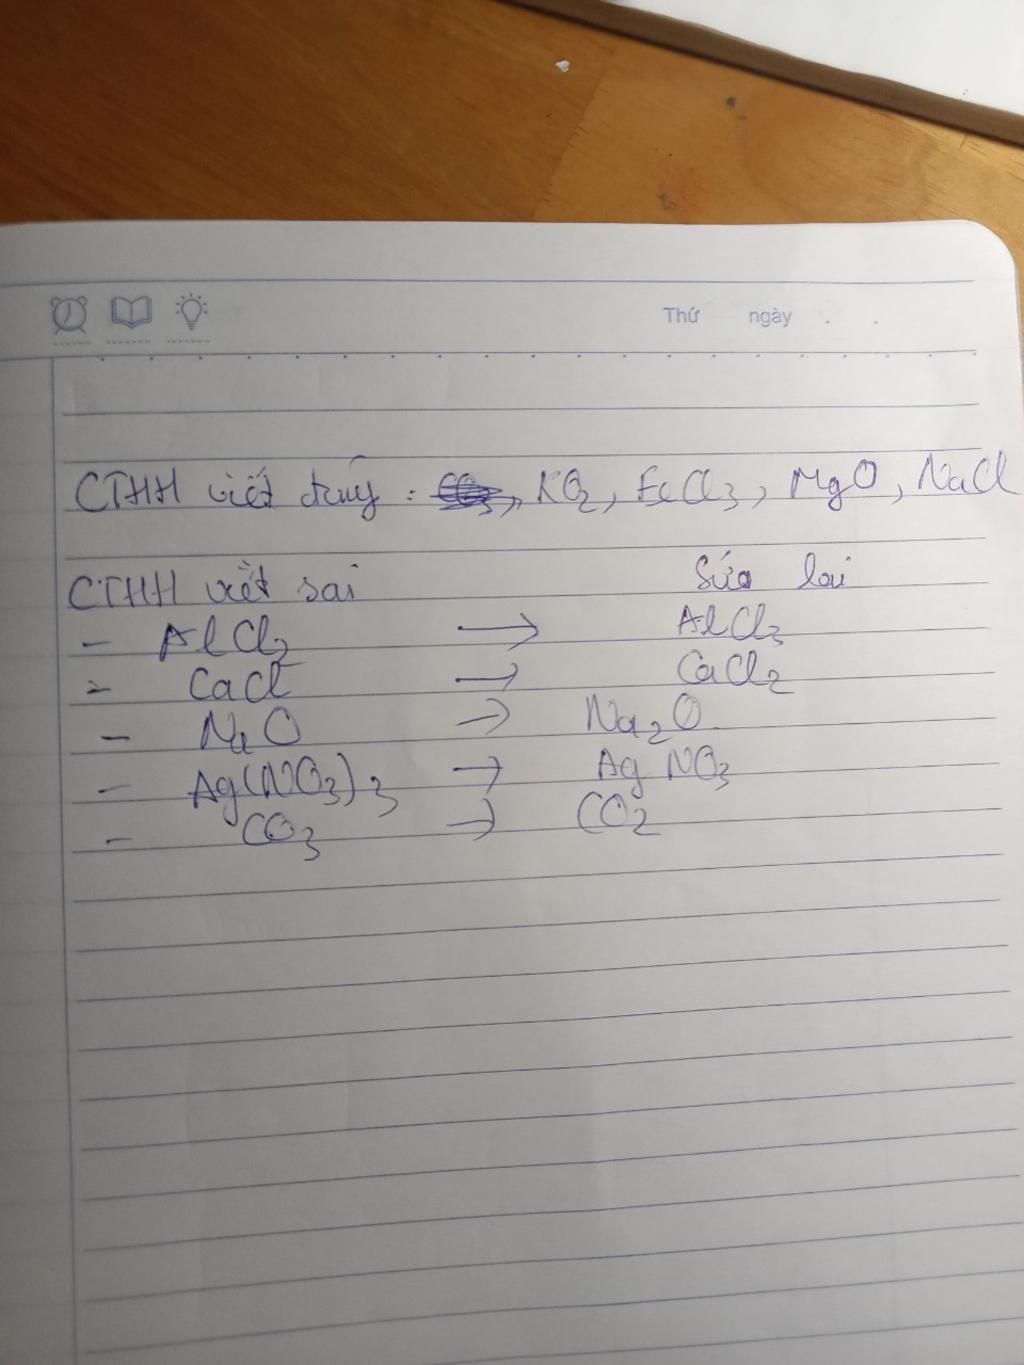 Thứ ngày . .
CTHH viết đúng : KO₂, FeCl₃, MgO, NaCl
CTHH viết sai Sửa lại
- AlCl₂ → AlCl₃
- CaCl → CaCl₂
- NaO → Na₂O
- Ag(NO₃)₃ → AgNO₃
- CO₃ → CO₂